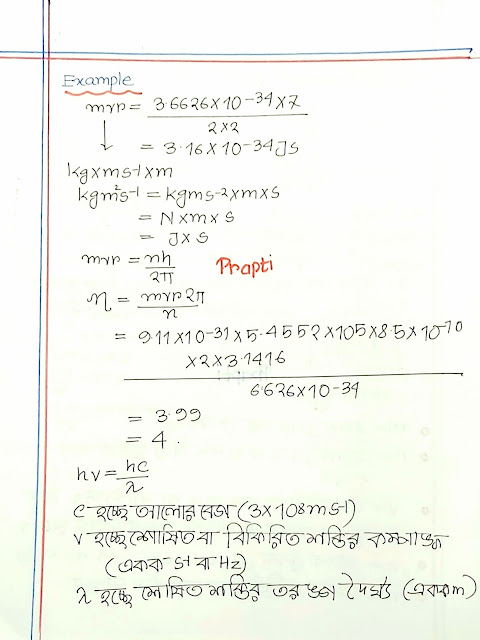 Example
mvr = 3.6626×10-34×7
2×2
= 3.16×10-34JS
kg×ms-1×m
kgm2s-1 = kgms-2×m×s
= N×m×s
= J×s
mvr = nh
2π
Prapti
n = mvr2π
n
= 9.11×10-31×5.4552×105×8.5×10-10
×2×3.1416
6.626×10-34
= 3.99
= 4.
hv = hc
λ
c হচ্ছে আলোর বেগ (3×108ms-1)
v হচ্ছে শোষিত বা বিকিরিত শক্তির কম্পাঙ্ক
(একক s1 বা Hz)
λ হচ্ছে শোষিত শক্তির তরঙ্গ দৈর্ঘ্য (একক m)